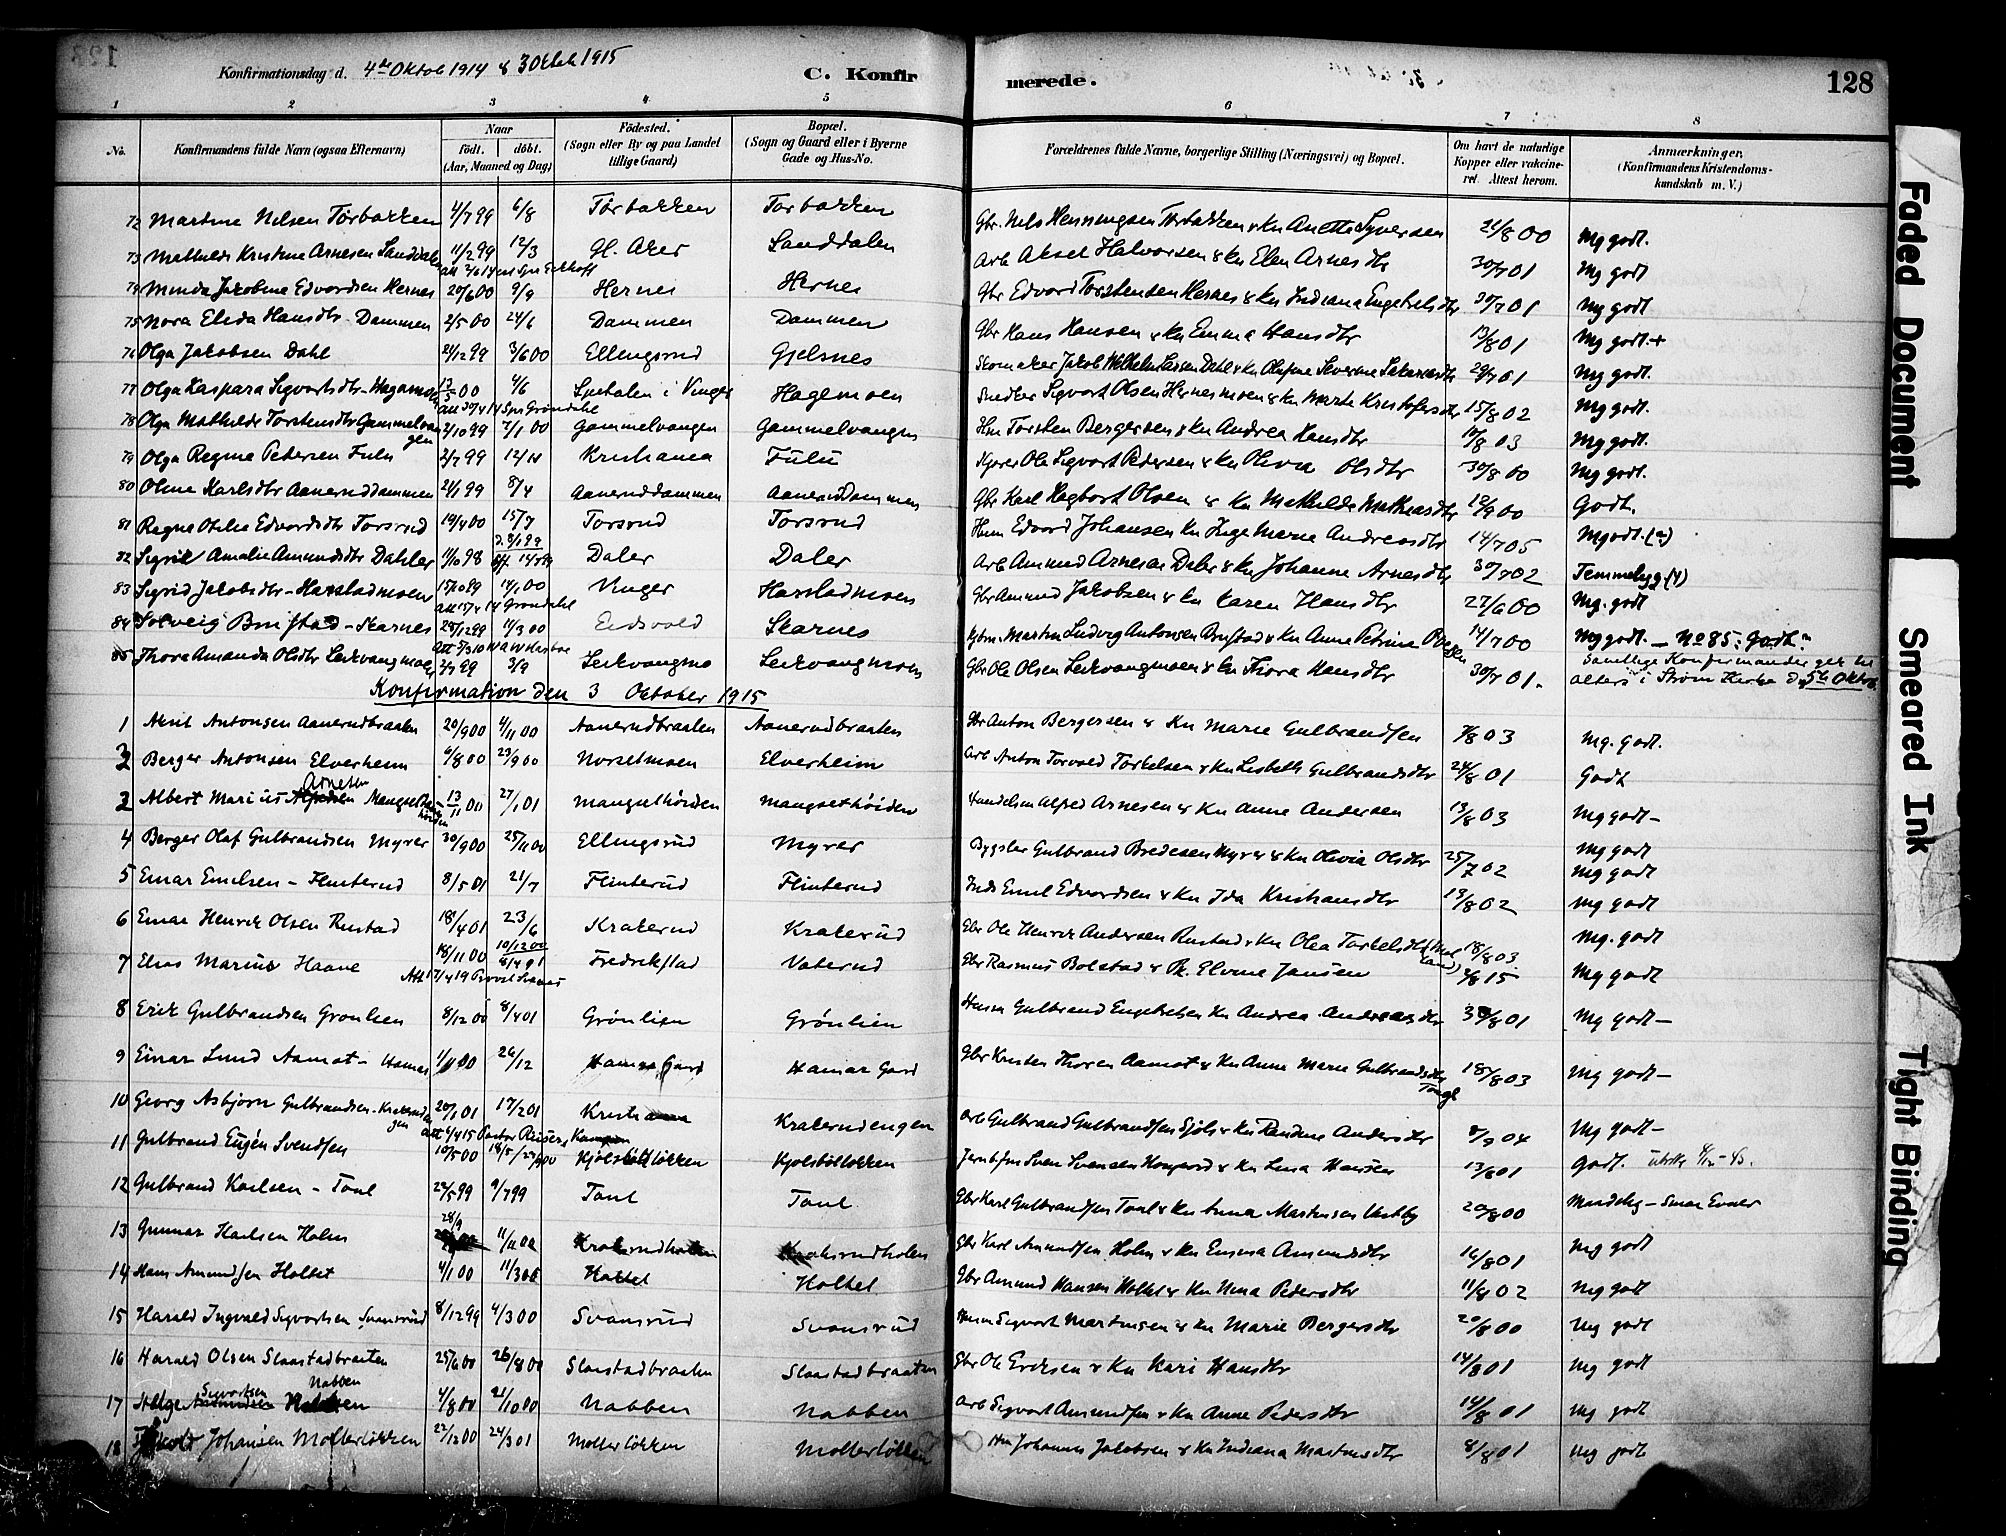 Konfirmationsdag d. 4de Oktob 1914 & 3 Oktob 1915
C. Konfirmerede.
128
1 2 3 4 5 6 7 8
No. Konfirmandens fulde Navn (ogsaa Efternavn) Naar födt. döbt. (Aar, Maaned og Dag) Födested. (Sogn eller By og paa Landet tillige Gaard) Bopæl. (Sogn og Gaard eller i Byerne Gade og Hus-No. Forældrenes fulde Navne, borgerlige Stilling (Næringsvei) og Bopæl. Om havt de naturlige Kopper eller vakcineret. Attest herom. Anmærkninger. (Konfirmandens Kristendomskundskab m. V.)
72 Martine Nilsen Torbakken 4/7 99 6/8 Torbakken Torbakken Gbr. Nils Henningsen Torbakken & Kn Anette Syversen 21/8 00 Mg godt.
73 Mathilde Kristine Arnesen Sanddalen 11/2 99 12/3 Gl. Aker Sanddalen Arb Aksel Halvorsen & Kn Elen Arnesdtr 30/7 01 Mg godt
74 Minda Jakobine Edvardsen Hernes 20/6 00 9/9 Hernes Hernes Gbr Edvard Torstensen Hernes & Kn Indiana Engebretsdtr 30/7 01 Mg godt
75 Nora Elida Hansdtr Dammen 2/5 00 24/6 Dammen Dammen Gbr Hans Hansen & Kn Emma Hansdtr 13/8 01 Mg godt.+
76 Olga Jakobsen Dahl 21/12 99 3/6 00 Ellingsrud Gjelsnes Skomaker Jakob Wilhelm Larsen Dahl & Kn Olufine Severine 29/7 01 Mg godt.
77 Olga Kaspara Sigvartsdtr Hagemoen 13/5 00 4/6 Spetalen i Vinger Hagemoen Snedker Sigvart Olsen Hernesmoen & Kn Marte Kristofersdtr 15/8 02 Mg godt.
78 Olga Mathilde Torstensdtr Gammelvangen 2/10 99 7/1 00 Gammelvangen Gammelvangen Hm Torsten Bergersen & Kn Andrea Hansdtr 17/8 03 Mg godt.
79 Olga Regine Petersen Fulu 2/7 99 12/11 Kristiania Fulu Kjører Ole Sigvart Pedersen & Kn Olivia Olsdtr 30/8 00 Mg godt.
80 Oline Karlsdtr Aanerud dammen 21/1 99 8/4 Aaneruddammen Aaneruddammen Gbr Karl Hagbart Olsen & Kn Mathilde Mathiasdtr 12/9 00 Godt.
81 Ragna Otilie Edvardsdtr Torsrud 19/4 00 15/7 Torsrud Torsrud Hm Edvard Johansen Kn Inge Marie Andreasdtr 14/7 05 Mgodt.
82 Sigrid Amalie Amundsdtr Dahler 11/10 98 Daler Daler Arb Amund Arnesen Daler & Kn Johanne Arnesdtr 30/7 02 Temmelig
83 Sigrid Jakobsdtr - Harstadmoen 15/10 99 14/1 00 Vinger Harstadmoen Gbr Amund Jakobsen & Kn Karen Hansdtr 27/6 00 Mg. godt
84 Solveig Bunstad - Skarnes 28/12 99 11/3 00 Eidsvold Skarnes Martin Ludvig Antonsen Bunstad & Kn Anne Petrine 14/7 00 Mg godt. - No 85: Godt.
85 Thora Amanda Olsdtr Leikvangmoen 2/7 99 3/9 Leikvangmo Leikvangmoen Gbr Ole Olsen Leikvangmoen & Kn Thora Hansdtr 30/7 01. Samtlige Konfirmander gik til alters i Strøm Kirke d. 5te Oktob
Konfirmation den 3 Oktober 1915
1 Arnt Antonsen Aanerudbraaten 20/9 00 4/11 00 Aanerudbraaten Aanerudbraaten Gbr Anton Bergersen & Kn Marie Gulbrandsen 7/8 03 Mg. godt.
2 Berger Antonsen Elverheim 6/8 00 23/9 00 Norsetmoen Elverheim Arb Anton Torvald Torkelsen & Kn Lisbeth Gulbrandsdtr 24/8 01 Godt
3 Albert Marius Arnesen Mangsethøiden 13/11 00 27/1 01 Mangsethøiden Mangsethöiden Handelsm Alfred Arnesen & Kn Anne Andersen 13/8 03 Mg godt-
4 Berger Olaf Gulbrandsen Myrer 30/9 00 25/11 00 Ellingsrud Myrer Bygsler Gulbrand Bredesen Myrer & Kn Olivia Olsdtr 25/7 02 Mg godt
5 Einar Emilsen - Flinterud 8/5 01 21/7 Flinterud Flinterud Inds Emil Edvardsen & Kn Ida Kristiansdtr 13/8 02 Mg godt
6 Einar Henrik Olsen Rustad 18/4 01 23/6 Kraterud Kraterud Gbr Ole Henrik Andersen Rustad & Kn Olea Torkelsdtr 18/8 03 Mg. godt
7 Elias Marius Haave 18/11 00 10/12 00 Fredrikstad Vaterud Gbr Rasmus Bolstad & Pk. Elvine Jansen 4/8 15 Mg godt
8 Erik Gulbrandsen Grønlien 8/12 00 8/4 01 Grønlien Grönlien Husm Gulbrand Engebretsen Kn Andrea Andreasdtr 30/8 01 Mg godt-
9 Einar Lund Aamot - Hamar 1/11 00 26/12 Hamar Gard Hamar Gard Gbr Kristen Thoren Aamot & Kn Anne Marie Gulbrandsdtr 18/8 03 Mg godt-
10 Georg Asbjørn Gulbrandsen - Kraterudengen 20/1 01 17/2 01 Kristiania Kraterudengen Arb Gulbrand Gulbrandsen Sjøli & Kn Randine Andersdtr 8/9 04 Mg godt-
11 Gulbrand Eugén Svendsen 10/5 00 Kjølstadløkken Kjolsbölløkken Sven Svensen & Kn Lina Hansen 13/6 01 godt.
12 Gulbrand Karlsen - Tout 29/5 99 9/7 99 Tout Tout Gbr Karl Gulbrandsen Tout & Kn Anna Martinsen Vestby 20/8 00 Maadelig - Smaa Evner
13 Gunnar Karlsen Holm 28/9 11/11 00 Krakerudholen Krakerudholen Gbr Karl Amundsen Holm & Kn Emma Amundsdtr 16/8 01 Mg godt
14 Hans Amundsen Holtet 4/1 00 11/3 00 Holtet Holtet Gbr Amund Hansen Holtet & Kn Nina Pedersdtr 11/8 02 Mg godt
15 Harald Ingvald Sigvartsen Svansrud 8/12 99 4/3 00 Svansrud Svansrud Husm Sigvart Martinsen & Kn Marie Bergersdtr 20/8 00 Mg godt
16 Harald Olsen Slaastadbraaten 25/6 00 26/8 00 Slaastadbraaten Slaastadbraaten Gbr Ole Eriksen & Kn Kari Hansdtr 14/8 01 Mg godt
17 Helge Sigvartsen Nabben 4/8 00 21/10 00 Nabben Nabben Arb Sigvart Amundsen & Kn Anne Pedersdtr 14/8 01 Mg godt
18 Johansen Mollerløkken 22/12 00 24/3 01 Mollerløkken Mollerløkken Hm Johannes Jakobsen & Kn Indiana Martinsdtr 8/8 01 Mg godt
Faded Document
Smeared Ink
Tight Binding